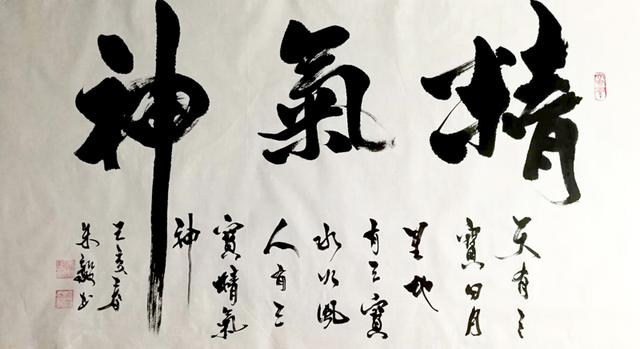 精氣神
天有三
寶日月
星地
有三寶
水火風
人有三
寶精氣
神
亥春
朱毅书